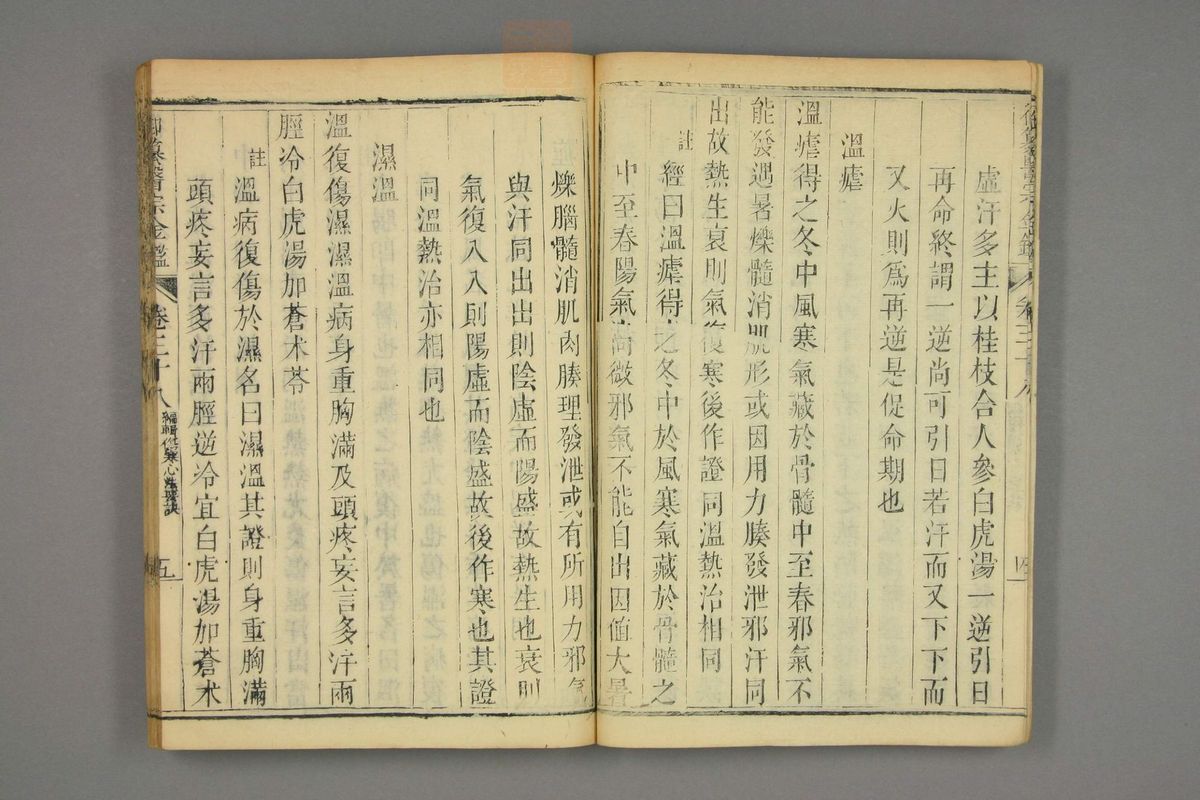 虛汗多主以桂枝合人參白虎湯一逆引日
再命終謂一逆尚可引日若汗而又下下而
又火則爲再逆是促命期也
溫瘧
溫瘧得之冬中風寒氣藏於骨髓中至春邪氣不
能發遇暑爍髓消肌形或因用力腠發泄邪汗同
出故熱生衰則氣復寒後作證同溫熱治相同
註經曰溫瘧得之冬中於風寒氣藏於骨髓之
中至春陽氣尚微邪氣不能自出因值大暑
爍腦髓消肌肉腠理發泄或有所用力邪氣
與汗同出出則陰虛而陽盛故熱生也衰則
氣復入入則陽虛而陰盛故後作寒也其證
同溫熱治亦相同也
濕溫
溫復傷濕濕溫病身重胸滿及頭疼妄言多汗兩
脛冷白虎湯加蒼术苓
註溫病復傷於濕名曰濕溫其證則身重胸滿
頭疼妄言多汗兩脛逆冷宜白虎湯加蒼术
御纂醫宗金鑑 卷三十八 編輯傷寒心法要訣 五